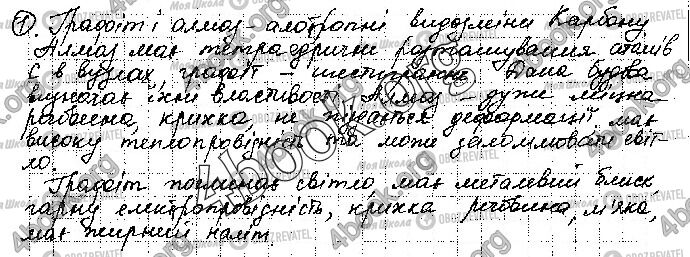 ① Графіт і алмаз алотропні видозміни Карбону
Алмаз має тетраедричні розташування атомів
С в вузлах, графіт – шестигранне. Дана будова
визначає їхні властивості. Алмаз – дуже міцна
рабвсина, крихка, не піддається деформації, має
високу теплопровідність та може заломлювати світ-
ло.
Графіт поглинає світло, має металевий блиск
гарну електропровідність, крихка речовина, м'яка,
має жирний наліт
4book.org